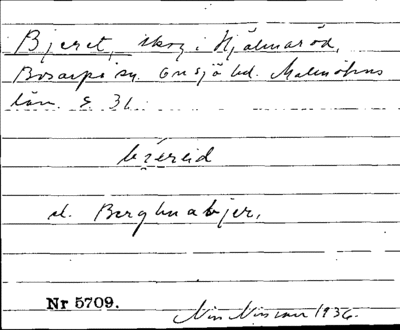 Bjeret, skog i Hjälmaröd,
Bosarps sn. Onsjö hd. Malmöhus
län. E. 31.
bjereid
el. Berghuabjer,
Nr 5709.
Nils Nilsson 1936.